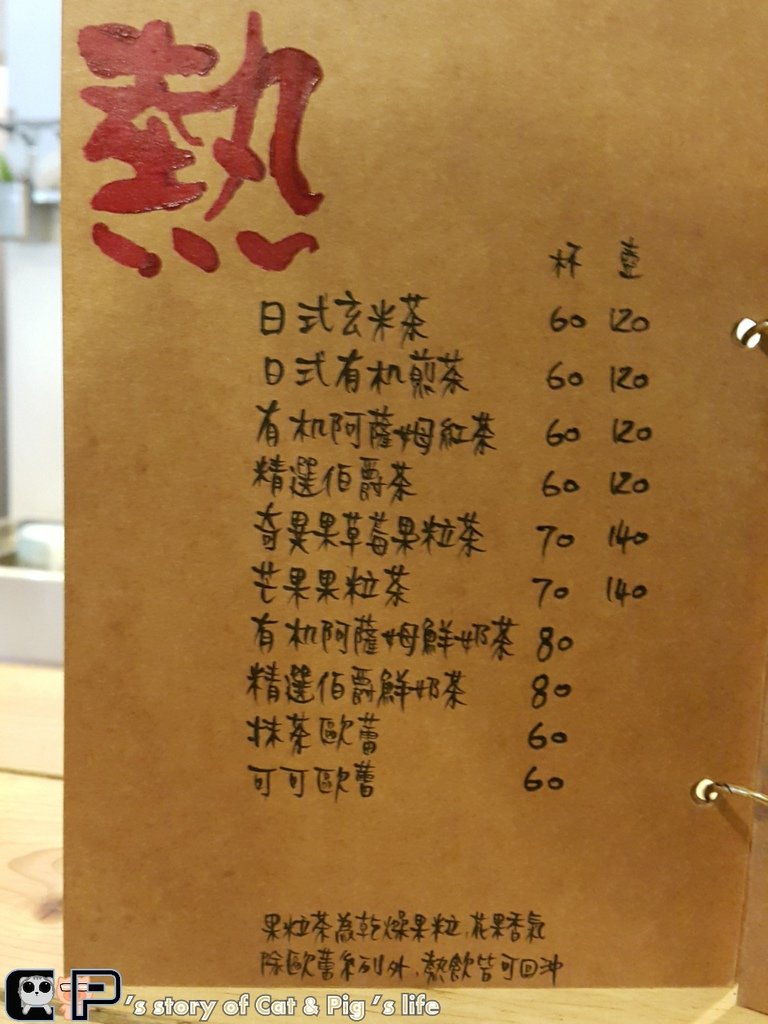 熱
杯 壺
日式玄米茶 60 120
日式有机煎茶 60 120
有机阿薩姆紅茶 60 120
精選伯爵茶 60 120
奇異果草莓果粒茶 70 140
芒果果粒茶 70 140
有机阿薩姆鮮奶茶 80
精選伯爵鮮奶茶 80
抹茶歐蕾 60
可可歐蕾 60
果粒茶為乾燥果粒,花果香氣
除歐蕾系列外,熱飲皆可回沖
CP's story of Cat & Pig's life